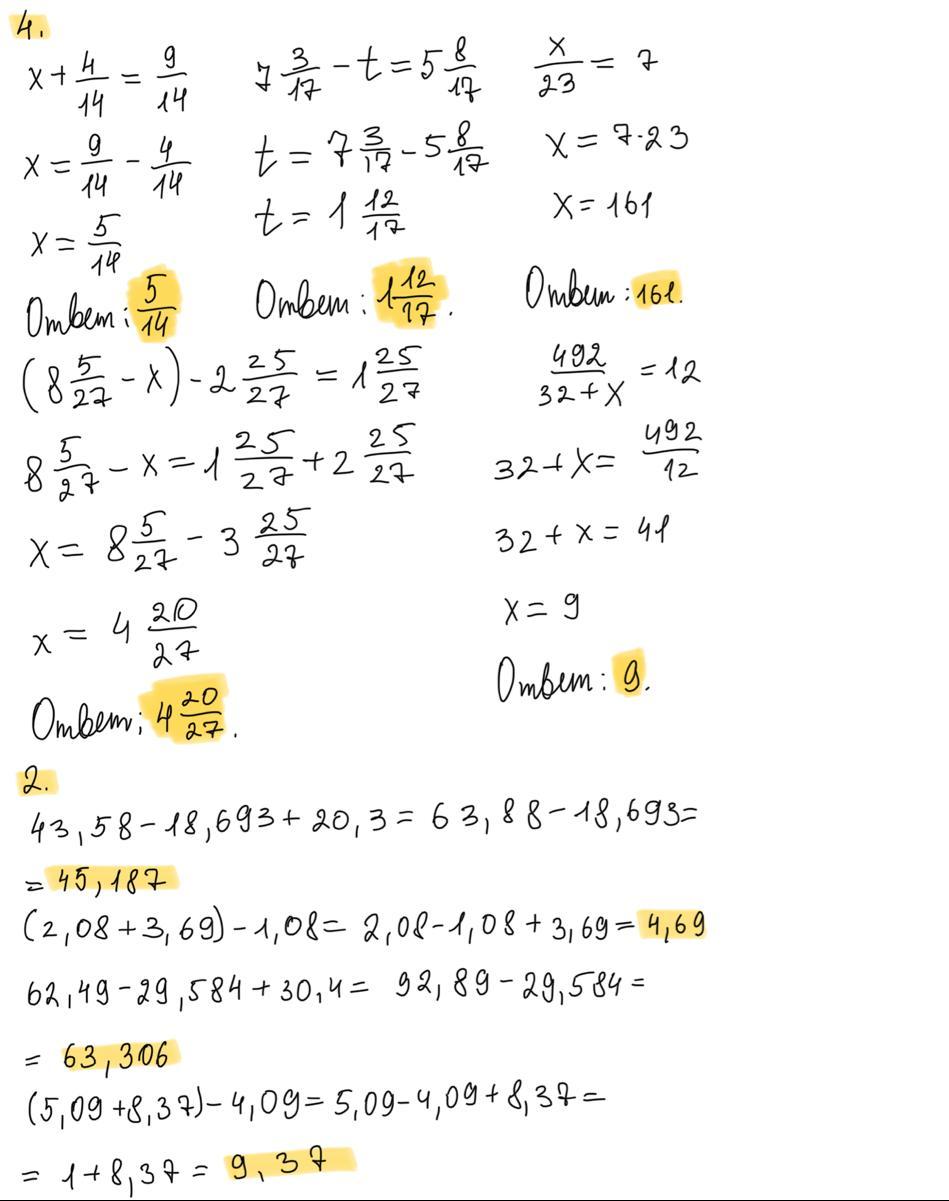 4.
x + 4/14 = 9/14
x = 9/14 - 4/14
x = 5/14
Ответ: 5/14
7 3/17 - t = 5 8/17
t = 7 3/17 - 5 8/17
t = 1 12/17
Ответ: 1 12/17.
x/23 = 7
x = 7·23
x = 161
Ответ: 161.
(8 5/27 - x) - 2 25/27 = 1 25/27
8 5/27 - x = 1 25/27 + 2 25/27
x = 8 5/27 - 3 25/27
x = 4 20/27
Ответ: 4 20/27.
492/(32+x) = 12
32+x = 492/12
32 + x = 41
x = 9
Ответ: 9.
2.
43,58 - 18,693 + 20,3 = 63,88 - 18,693 =
= 45,187
(2,08 + 3,69) - 1,08 = 2,08 - 1,08 + 3,69 = 4,69
62,49 - 29,584 + 30,4 = 92,89 - 29,584 =
= 63,306
(5,09 + 8,37) - 4,09 = 5,09 - 4,09 + 8,37 =
= 1 + 8,37 = 9,37